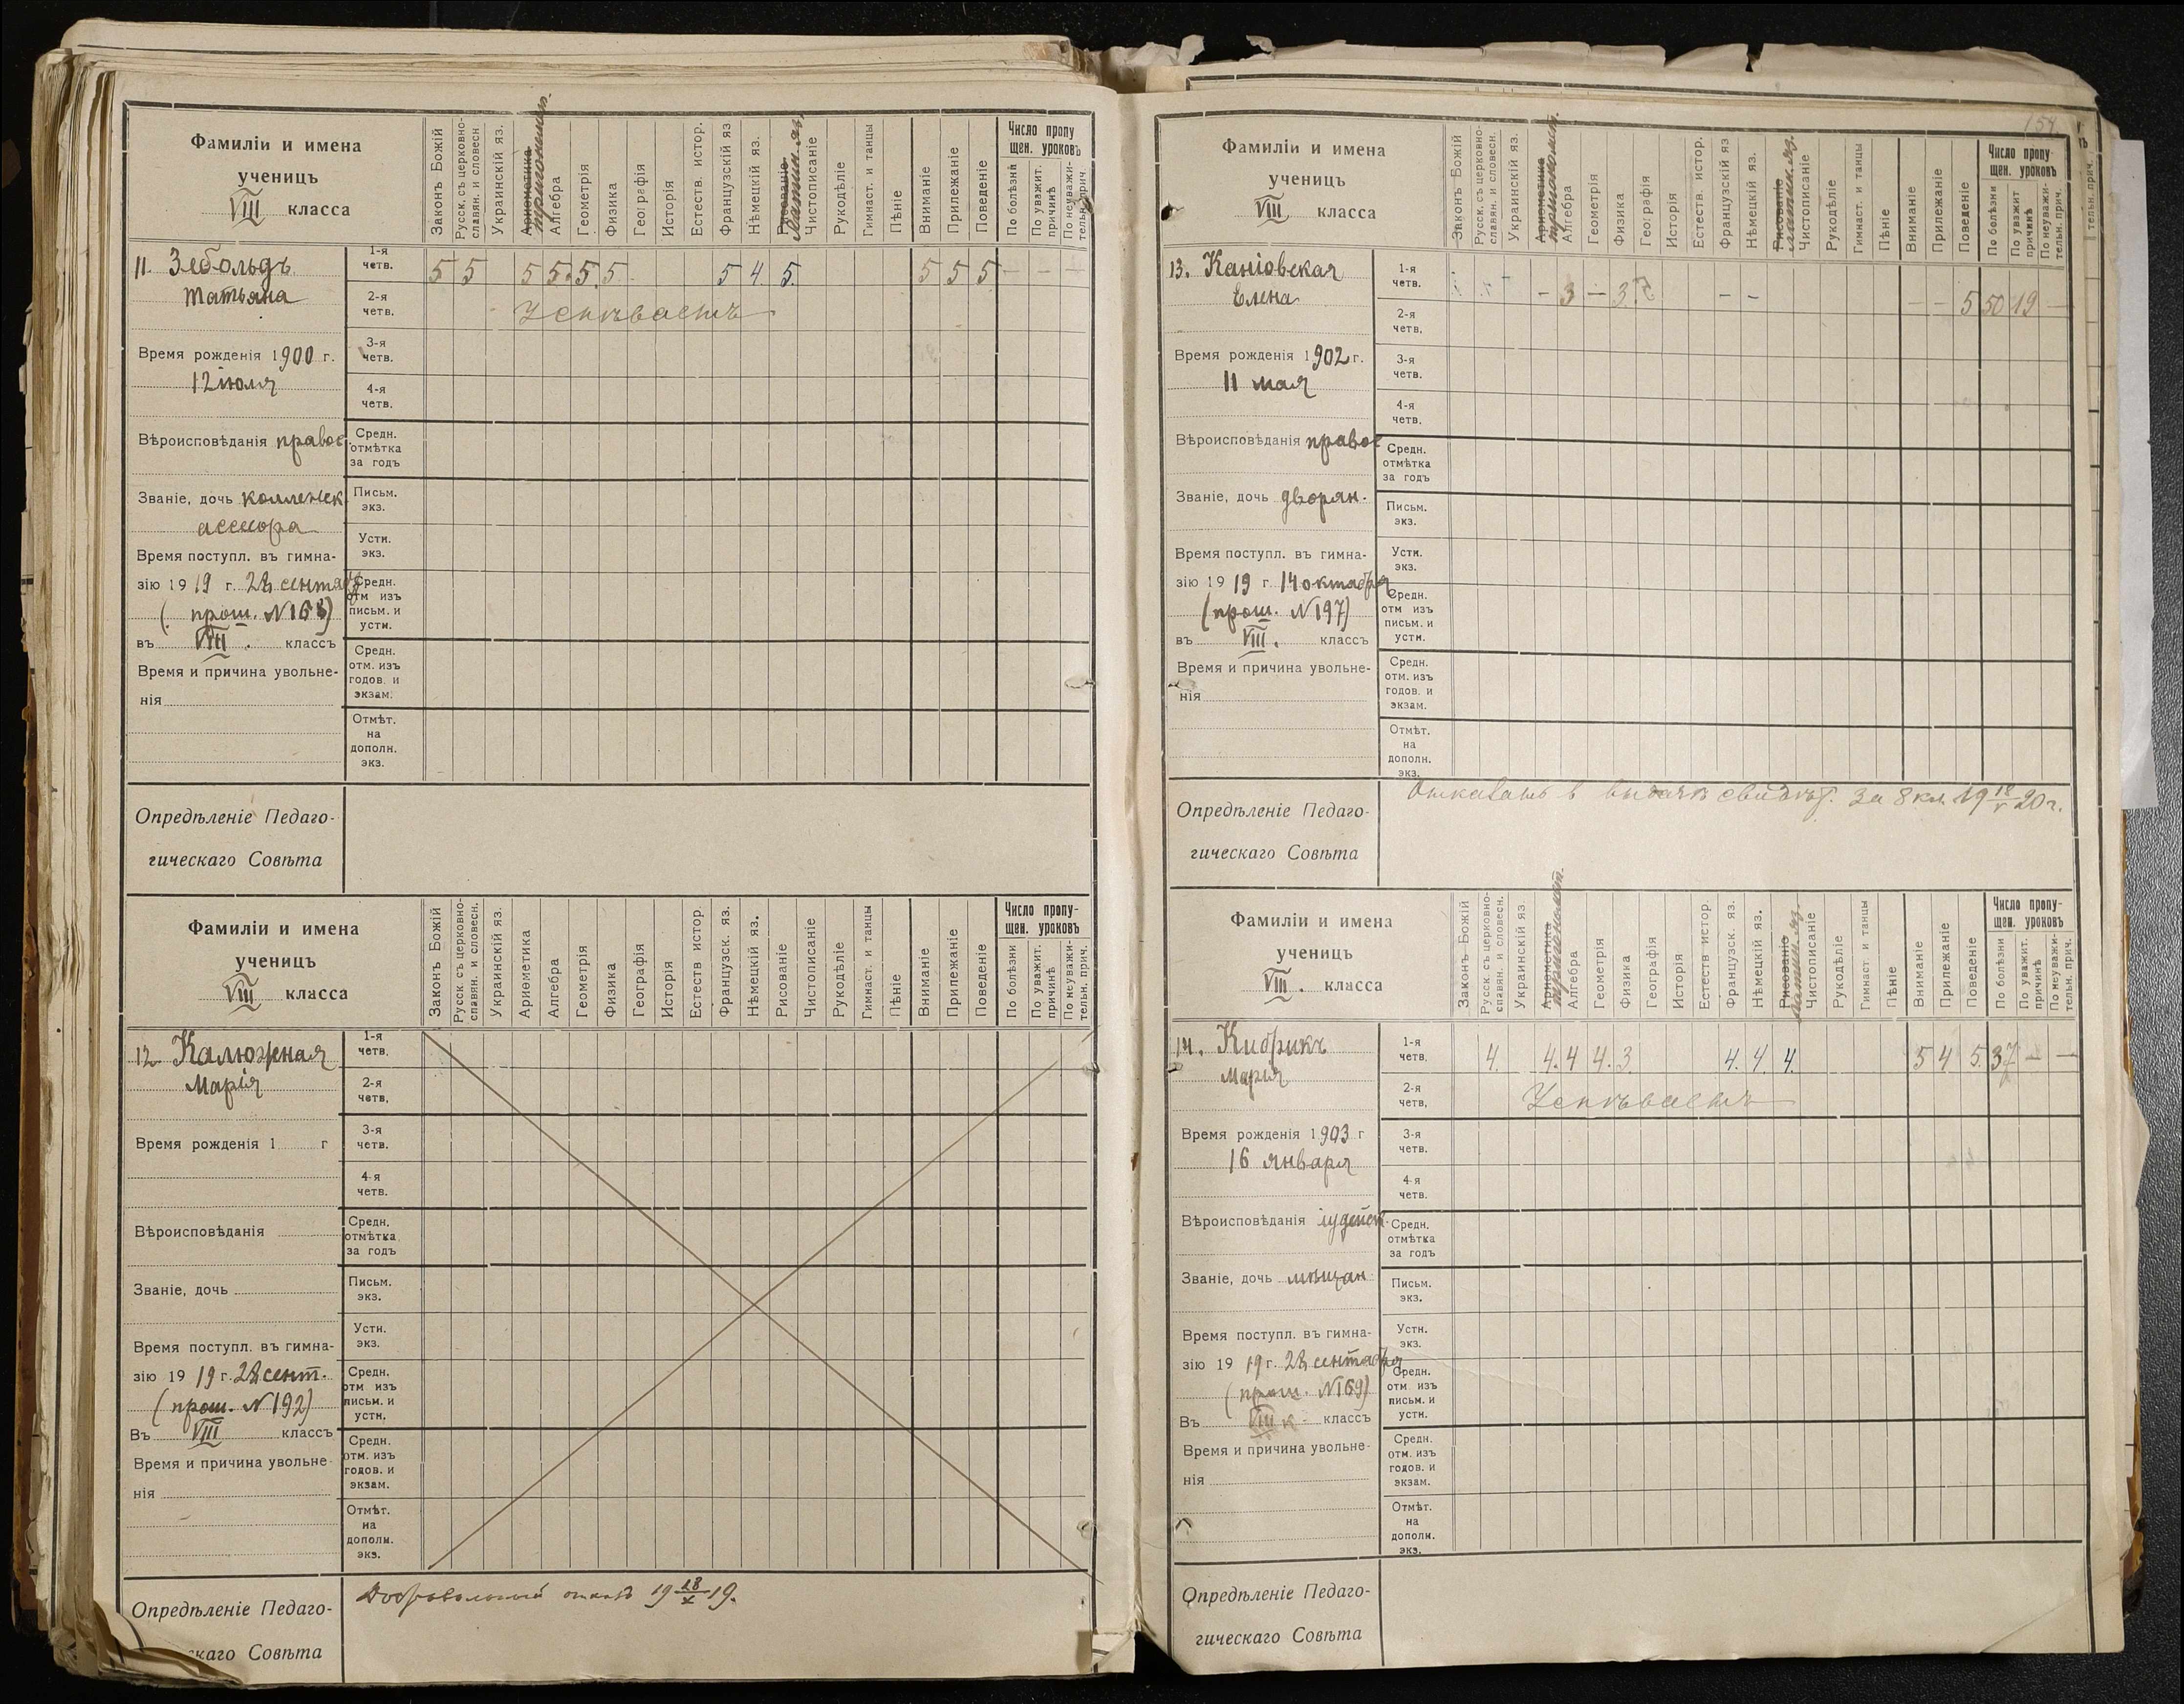 Фамиліи и имена
ученицъ
VIII класса
Законъ Божій
Русск. съ церковно-
славян. и словесн
Украинскій яз.
Ариѳметика
тригономет.
Алгебра
Геометрія
Физика
Географія
Исторія
Естеств. истор.
Французскій яз
Нѣмецкій яз.
Рисованіе
Латин. яз.
Чистописаніе
Рукодѣліе
Гимнаст. и танцы
Пѣніе
Вниманіе
Прилежаніе
Поведеніе
Число пропу
щен. уроковъ
По болѣзни
По уважит.
причинѣ
По неуважи-
тельн. прич.
11. Зебольдъ
Татьяна
1-я
четв.
5 5 5 5 5 5 5 4 5 5 5 5 — — —
2-я
четв.
Успѣваетъ
Время рожденія 1900 г.
12 іюля
3-я
четв.
4-я
четв.
Вѣроисповѣданія правос.
Средн.
отмѣтка
за годъ
Званіе, дочь коллежск.
ассесора
Письм.
экз.
Устн.
экз.
Время поступл. въ гимна-
зію 1919 г. 28 сентяб
(прош. №168)
въ VIII. классъ
Средн.
отм изъ
письм. и
устн.
Время и причина увольне-
нія
Средн.
отм. изъ
годов. и
экзам.
Отмѣт.
на
дополн.
экз.
Опредѣленіе Педаго-
гическаго Совѣта
Фамиліи и имена
ученицъ
VIII класса
Законъ Божій
Русск съ церковно-
славян. и словесн.
Украинскій яз.
Ариѳметика
Алгебра
Геометрія
Физика
Географія
Исторія
Естеств истор
Французск. яз.
Нѣмецкій яз.
Рисованіе
Чистописаніе
Рукодѣліе
Гимнаст. и танцы
Пѣніе
Вниманіе
Прилежаніе
Поведеніе
Число пропу-
щен. уроковъ
По болѣзни
По уважит.
причинѣ
По неуважи-
тельн. прич.
12. Калюжная
Марія
1-я
четв.
2-я
четв,
Время рожденія 1 г
3-я
четв.
4-я
четв.
Вѣроисповѣданія
Средн.
отмѣтка
за годъ
Званіе, дочь
Письм.
экз.
Устн.
экз.
Время поступл. въ гимна-
зію 1919 г. 28 сент.
(прош. №192)
Въ VIII классъ
Средн.
отм изъ
письм. и
устн.
Время и причина увольне
нія
Средн.
отм. изъ
годов. и
экзам.
Отмѣт.
на
дополн.
экз.
Опредѣленіе Педаго-
скаго Совѣта
Добровольный отказъ 19 28/X 19.
Фамиліи и имена
ученицъ
VIII класса
Законъ Божій
Русск. съ церковно-
славян. и словесн.
Украинскій яз.
Ариѳметика
тригономет.
Алгебра
Геометрія
Физика
Географія
Исторія
Естеств. истор.
Французскій яз
Нѣмецкій яз.
Рисованіе
латин. яз.
Чистописаніе
Рукодѣліе
Гимнаст. и танцы
Пѣніе
Вниманіе
Прилежаніе
Поведеніе
Число пропу-
щен. уроковъ
По болѣзни
По уважит
причинѣ
По неуважи-
тельн. прич.
тельн. прич.
13. Каніовская
Елена
1-я
четв.
— 3 — 3 — — — — 5 50 19 —
2-я
четв.
Время рожденія 1902 г.
11 мая
3-я
четв.
4-я
четв.
Вѣроисповѣданія правос
Средн.
отмѣтка
за годъ
Званіе, дочь дворян.
Письм.
экз.
Устн.
экз.
Время поступл. въ гимна-
зію 1919 г. 14 октября
(прош. №197)
въ VIII. классъ
Средн.
отм изъ
письм. и
устн.
Время и причина увольне-
нія
Средн.
отм. изъ
годов. и
экзам.
Отмѣт.
на
дополн.
экз.
Опредѣленіе Педаго-
гическаго Совѣта
Отказать в выдачѣ свидѣт. за 8 кл. 19 18/V 20 г.
Фамиліи и имена
ученицъ
VIII. класса
Законъ Божій
Русск. съ церковно-
славян. и словесн.
Украинскій яз
Ариѳметика
тригономет.
Алгебра
Геометрія
Физика
Географія
Исторія
Естеств истор.
Французск. яз.
Нѣмецкій яз.
Рисованіе
латин. яз.
Чистописаніе
Рукодѣліе
Гимнаст и танцы
Пѣніе
Вниманіе
Прилежаніе
Поведеніе
Число пропу-
щен. уроковъ
По болѣзни
По уважит.
причинѣ
По неуважи-
тельн. прич.
14. Кибрикъ
Марія
1-я
четв,
4. 4. 4 4. 3. 4. 4. 4. 5 4 5. 37 — —
2-я
четв,
Успѣваетъ
Время рожденія 1903 г
16 января
3-я
четв.
4-я
четв.
Вѣроисповѣданія іудейск.
Средн.
отмѣтка
за годъ
Званіе, дочь мѣщан.
Письм.
экз.
Устн.
экз.
Время поступл. въ гимна-
зію 1919 г. 28 сентября
(прош. №169)
Въ VIII к классъ
Средн.
отм изъ
письм. и
устн.
Время и причина увольне-
нія
Средн.
отм. изъ
годов. и
экзам.
Отмѣт.
на
дополн.
экз.
Опредѣленіе Педаго-
гическаго Совѣта